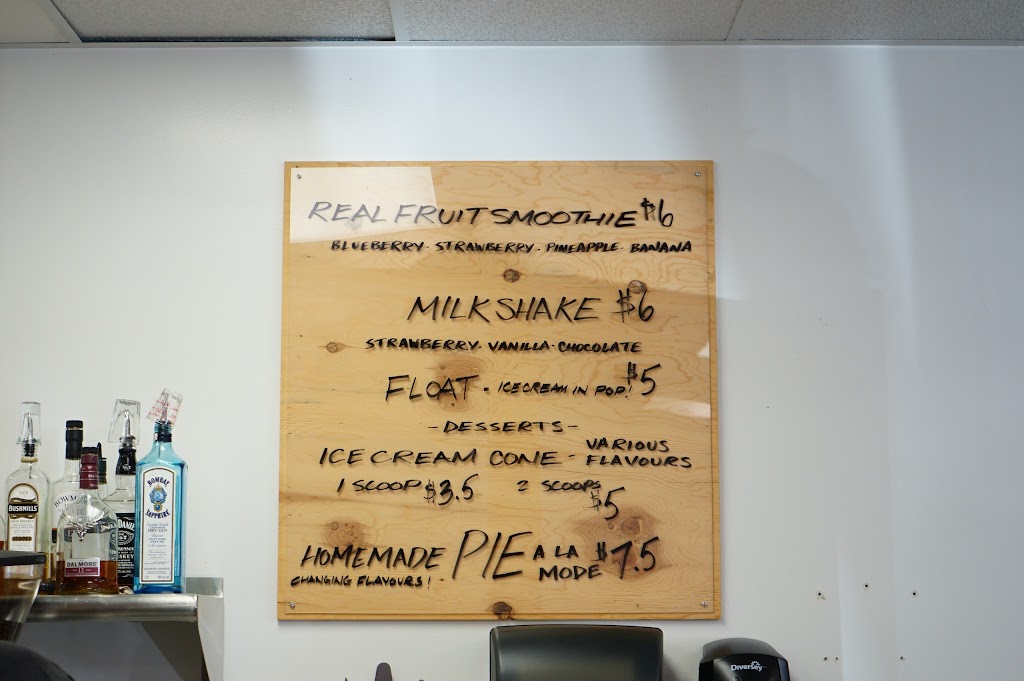 REAL FRUIT SMOOTHIE $6
BLUEBERRY - STRAWBERRY - PINEAPPLE - BANANA
MILKSHAKE $6
STRAWBERRY - VANILLA - CHOCOLATE
FLOAT - ICE CREAM IN POP! $5
- DESSERTS -
ICE CREAM CONE - VARIOUS FLAVOURS
1 SCOOP $3.5 2 SCOOPS $5
HOMEMADE PIE A LA MODE $7.5
CHANGING FLAVOURS!
BUSHMILLS
BOWM
DALMORE
12
DANIE
BOMBAY
SAPPHIRE
Diversey